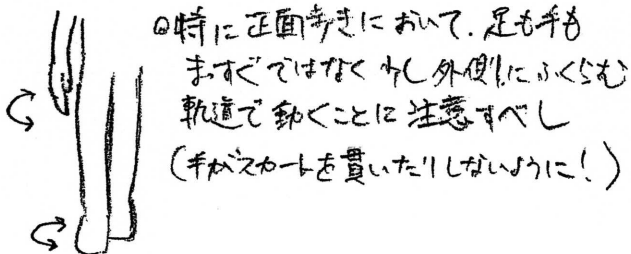 ◎特に正面歩きにおいて、足も手も
まっすぐではなく少し外側にふくらむ
軌道で動くことに注意すべし
(手がスカートを貫いたりしないように!)